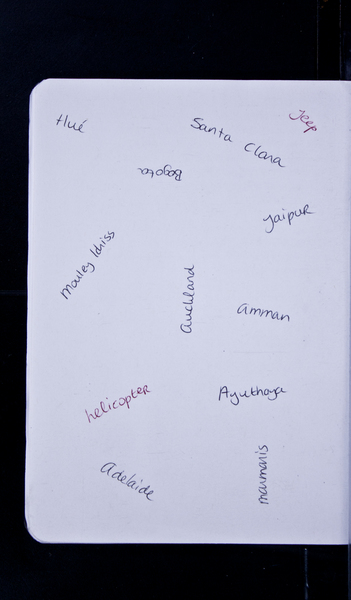 Hué
Santa Clara
Jeep
Bogota
Jaipur
Mouley Idriss
Auckland
Amman
helicopter
Ayuthaya
Adelaide